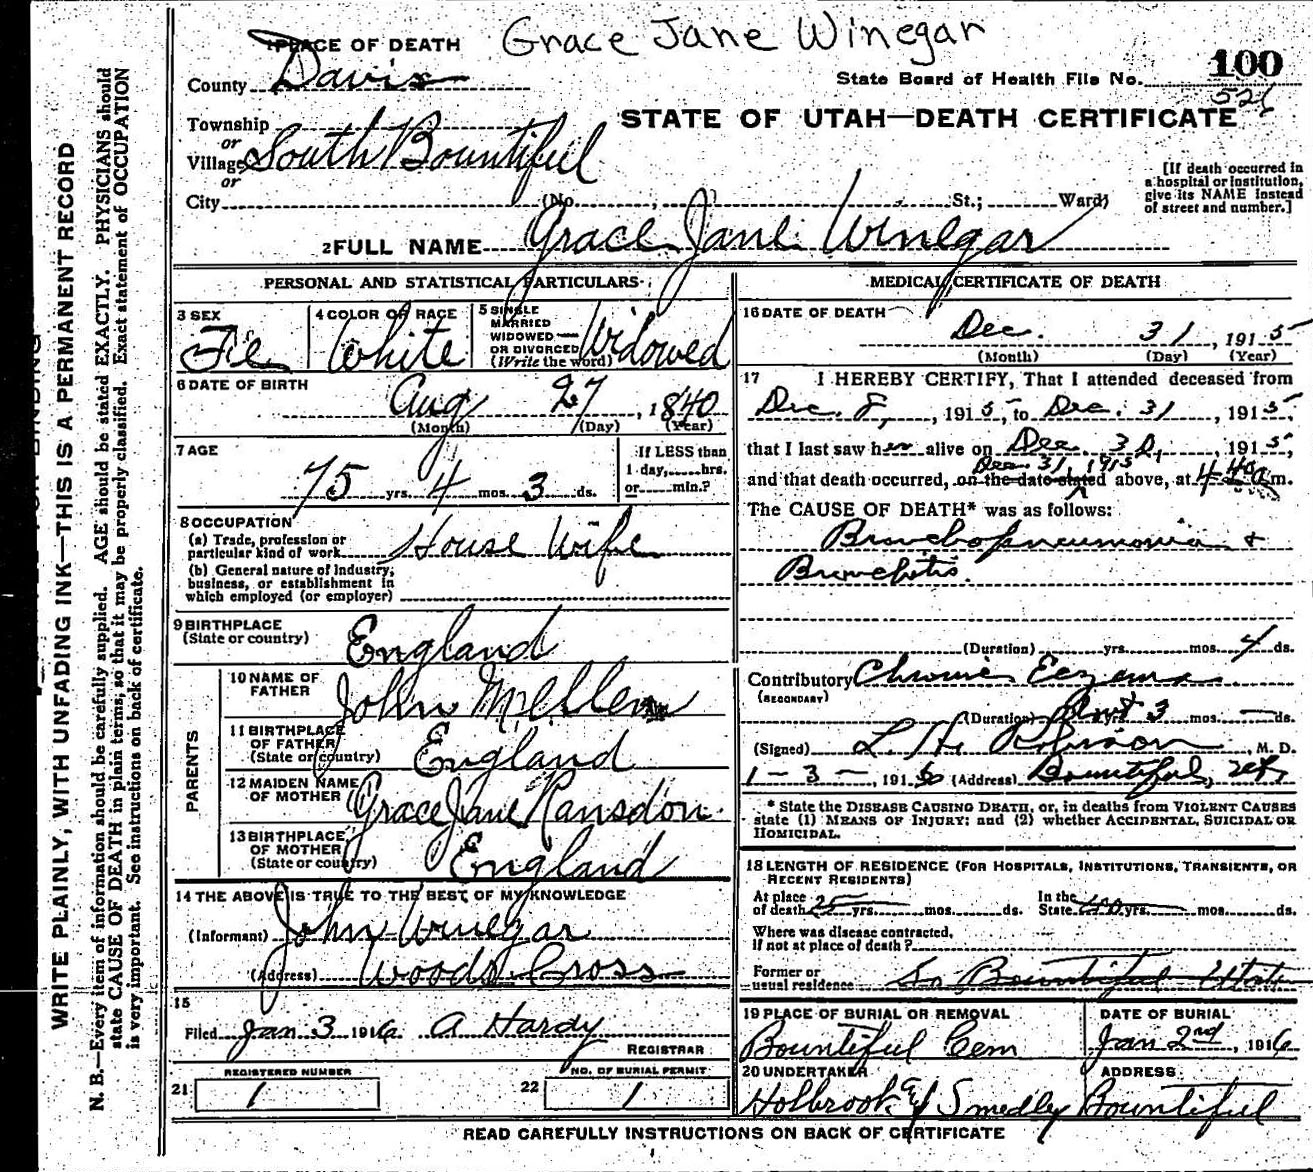 Grace Jane Winegar
1 PLACE OF DEATH
County Davis
State Board of Health File No. 100
526
STATE OF UTAH—DEATH CERTIFICATE
Township
or
Village South Bountiful
or
City (No. St.; Ward)
[If death occurred in a hospital or institution, give its NAME instead of street and number.]
2 FULL NAME Grace Jane Winegar
PERSONAL AND STATISTICAL PARTICULARS
3 SEX Fe
4 COLOR OR RACE White
5 SINGLE MARRIED WIDOWED OR DIVORCED (Write the word) Widowed
6 DATE OF BIRTH
Aug 27, 1840
(Month) (Day) (Year)
7 AGE
75 yrs. 4 mos. 3 ds.
If LESS than 1 day, hrs. or min.?
8 OCCUPATION
(a) Trade, profession or particular kind of work House Wife
(b) General nature of industry, business, or establishment in which employed (or employer)
9 BIRTHPLACE
(State or country) England
PARENTS
10 NAME OF FATHER John
11 BIRTHPLACE OF FATHER (State or country) England
12 MAIDEN NAME OF MOTHER Grace Jane Ransdon
13 BIRTHPLACE OF MOTHER (State or country) England
14 THE ABOVE IS TRUE TO THE BEST OF MY KNOWLEDGE
(Informant) John Winegar
(Address) Woods Cross
15
Filed Jan 3 1916 A Hardy
REGISTRAR
REGISTERED NUMBER
21 1
NO. OF BURIAL PERMIT
22 1
MEDICAL CERTIFICATE OF DEATH
16 DATE OF DEATH
Dec. 31, 1915
(Month) (Day) (Year)
17 I HEREBY CERTIFY, That I attended deceased from
Dec. 8, 1915, to Dec. 31, 1915,
that I last saw her alive on Dec. 30, 1915,
Dec. 31, 1915
and that death occurred, on the date stated above, at 4 40 a m.
The CAUSE OF DEATH* was as follows:
Bronchopneumonia &
Bronchitis.
(Duration) yrs. mos. 4 ds.
Contributory Chronic Eczema
(SECONDARY)
(Duration) yrs. 3 mos. ds.
(Signed) L. H. Robinson, M. D.
1-3-, 1916 (Address) Bountiful, Ut.
* State the DISEASE CAUSING DEATH, or, in deaths from VIOLENT CAUSES
state (1) MEANS OF INJURY; and (2) whether ACCIDENTAL, SUICIDAL OR
HOMICIDAL.
18 LENGTH OF RESIDENCE (FOR HOSPITALS, INSTITUTIONS, TRANSIENTS, OR
RECENT RESIDENTS)
At place of death 25 yrs. mos. ds. In the State yrs. mos. ds.
Where was disease contracted,
If not at place of death?
Former or usual residence So Bountiful Utah
19 PLACE OF BURIAL OR REMOVAL
Bountiful Cem
DATE OF BURIAL
Jan 2nd, 1916
20 UNDERTAKER
Holbrook & Smedley
ADDRESS
Bountiful
READ CAREFULLY INSTRUCTIONS ON BACK OF CERTIFICATE
WRITE PLAINLY, WITH UNFADING INK—THIS IS A PERMANENT RECORD
N. B.—Every item of information should be carefully supplied. AGE should be stated EXACTLY. PHYSICIANS should
state CAUSE OF DEATH in plain terms, so that it may be properly classified. Exact statement of OCCUPATION
is very important. See instructions on back of certificate.